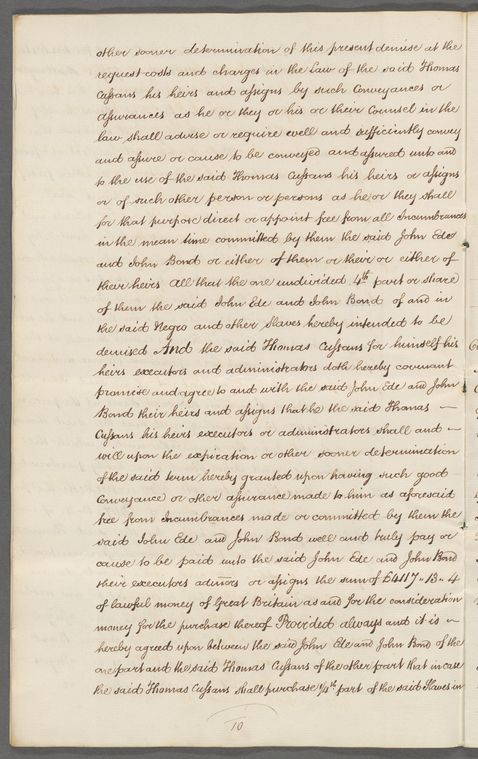 other sooner determination of this present demise at the
request costs and charges in the Law of the said Thomas
Cussans his heirs and assigns by such Conveyances or
Assurances as he or they or his or their Counsel in the
law shall advise or require well and sufficiently convey
and assure or cause to be conveyed and assured unto and
to the use of the said Thomas Cussans his heirs or assigns
or of such other person or persons as he or they shall
for that purpose direct or appoint free from all Incumbrances
in the mean time committed by them the said John Ede
and John Bond or either of them or their or either of
their heirs All that the one undivided 4th part or share
of them the said John Ede and John Bond of and in
the said Negro and other Slaves hereby intended to be
demised And the said Thomas Cussans for himself his
heirs executors and administrators doth hereby covenant
promise and agree to and with the said John Ede and John
Bond their heirs and assigns that he the said Thomas —
Cussans his heirs executors or administrators shall and —
will upon the expiration or other sooner determination
of the said term hereby granted upon having such good
Conveyance or other assurance made to him as aforesaid
free from Incumbrances made or committed by them the
said John Ede and John Bond well and truly pay or
cause to be paid unto the said John Ede and John Bond
their executors admors or assigns the sum of £4117 „ 13 „ 4
of lawful money of Great Britain as and for the consideration
money for the purchase thereof Provided always and it is —
hereby agreed upon between the said John Ede and John Bond of the
one part and the said Thomas Cussans of the other part that in case
the said Thomas Cussans shall purchase 1/4th part of the said Slaves in
10